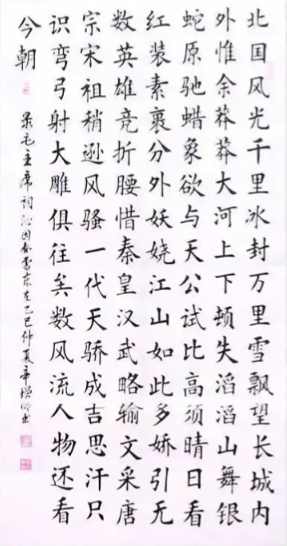 北国风光千里冰封万里雪飘望长城内
外惟余莽莽大河上下顿失滔滔山舞银
蛇原驰蜡象欲与天公试比高须晴日看
红装素裹分外妖娆江山如此多娇引无
数英雄竞折腰惜秦皇汉武略输文采唐
宗宋祖稍逊风骚一代天骄成吉思汗只
识弯弓射大雕俱往矣数风流人物还看
今朝
毛主席词沁园春雪岁在乙巳仲夏